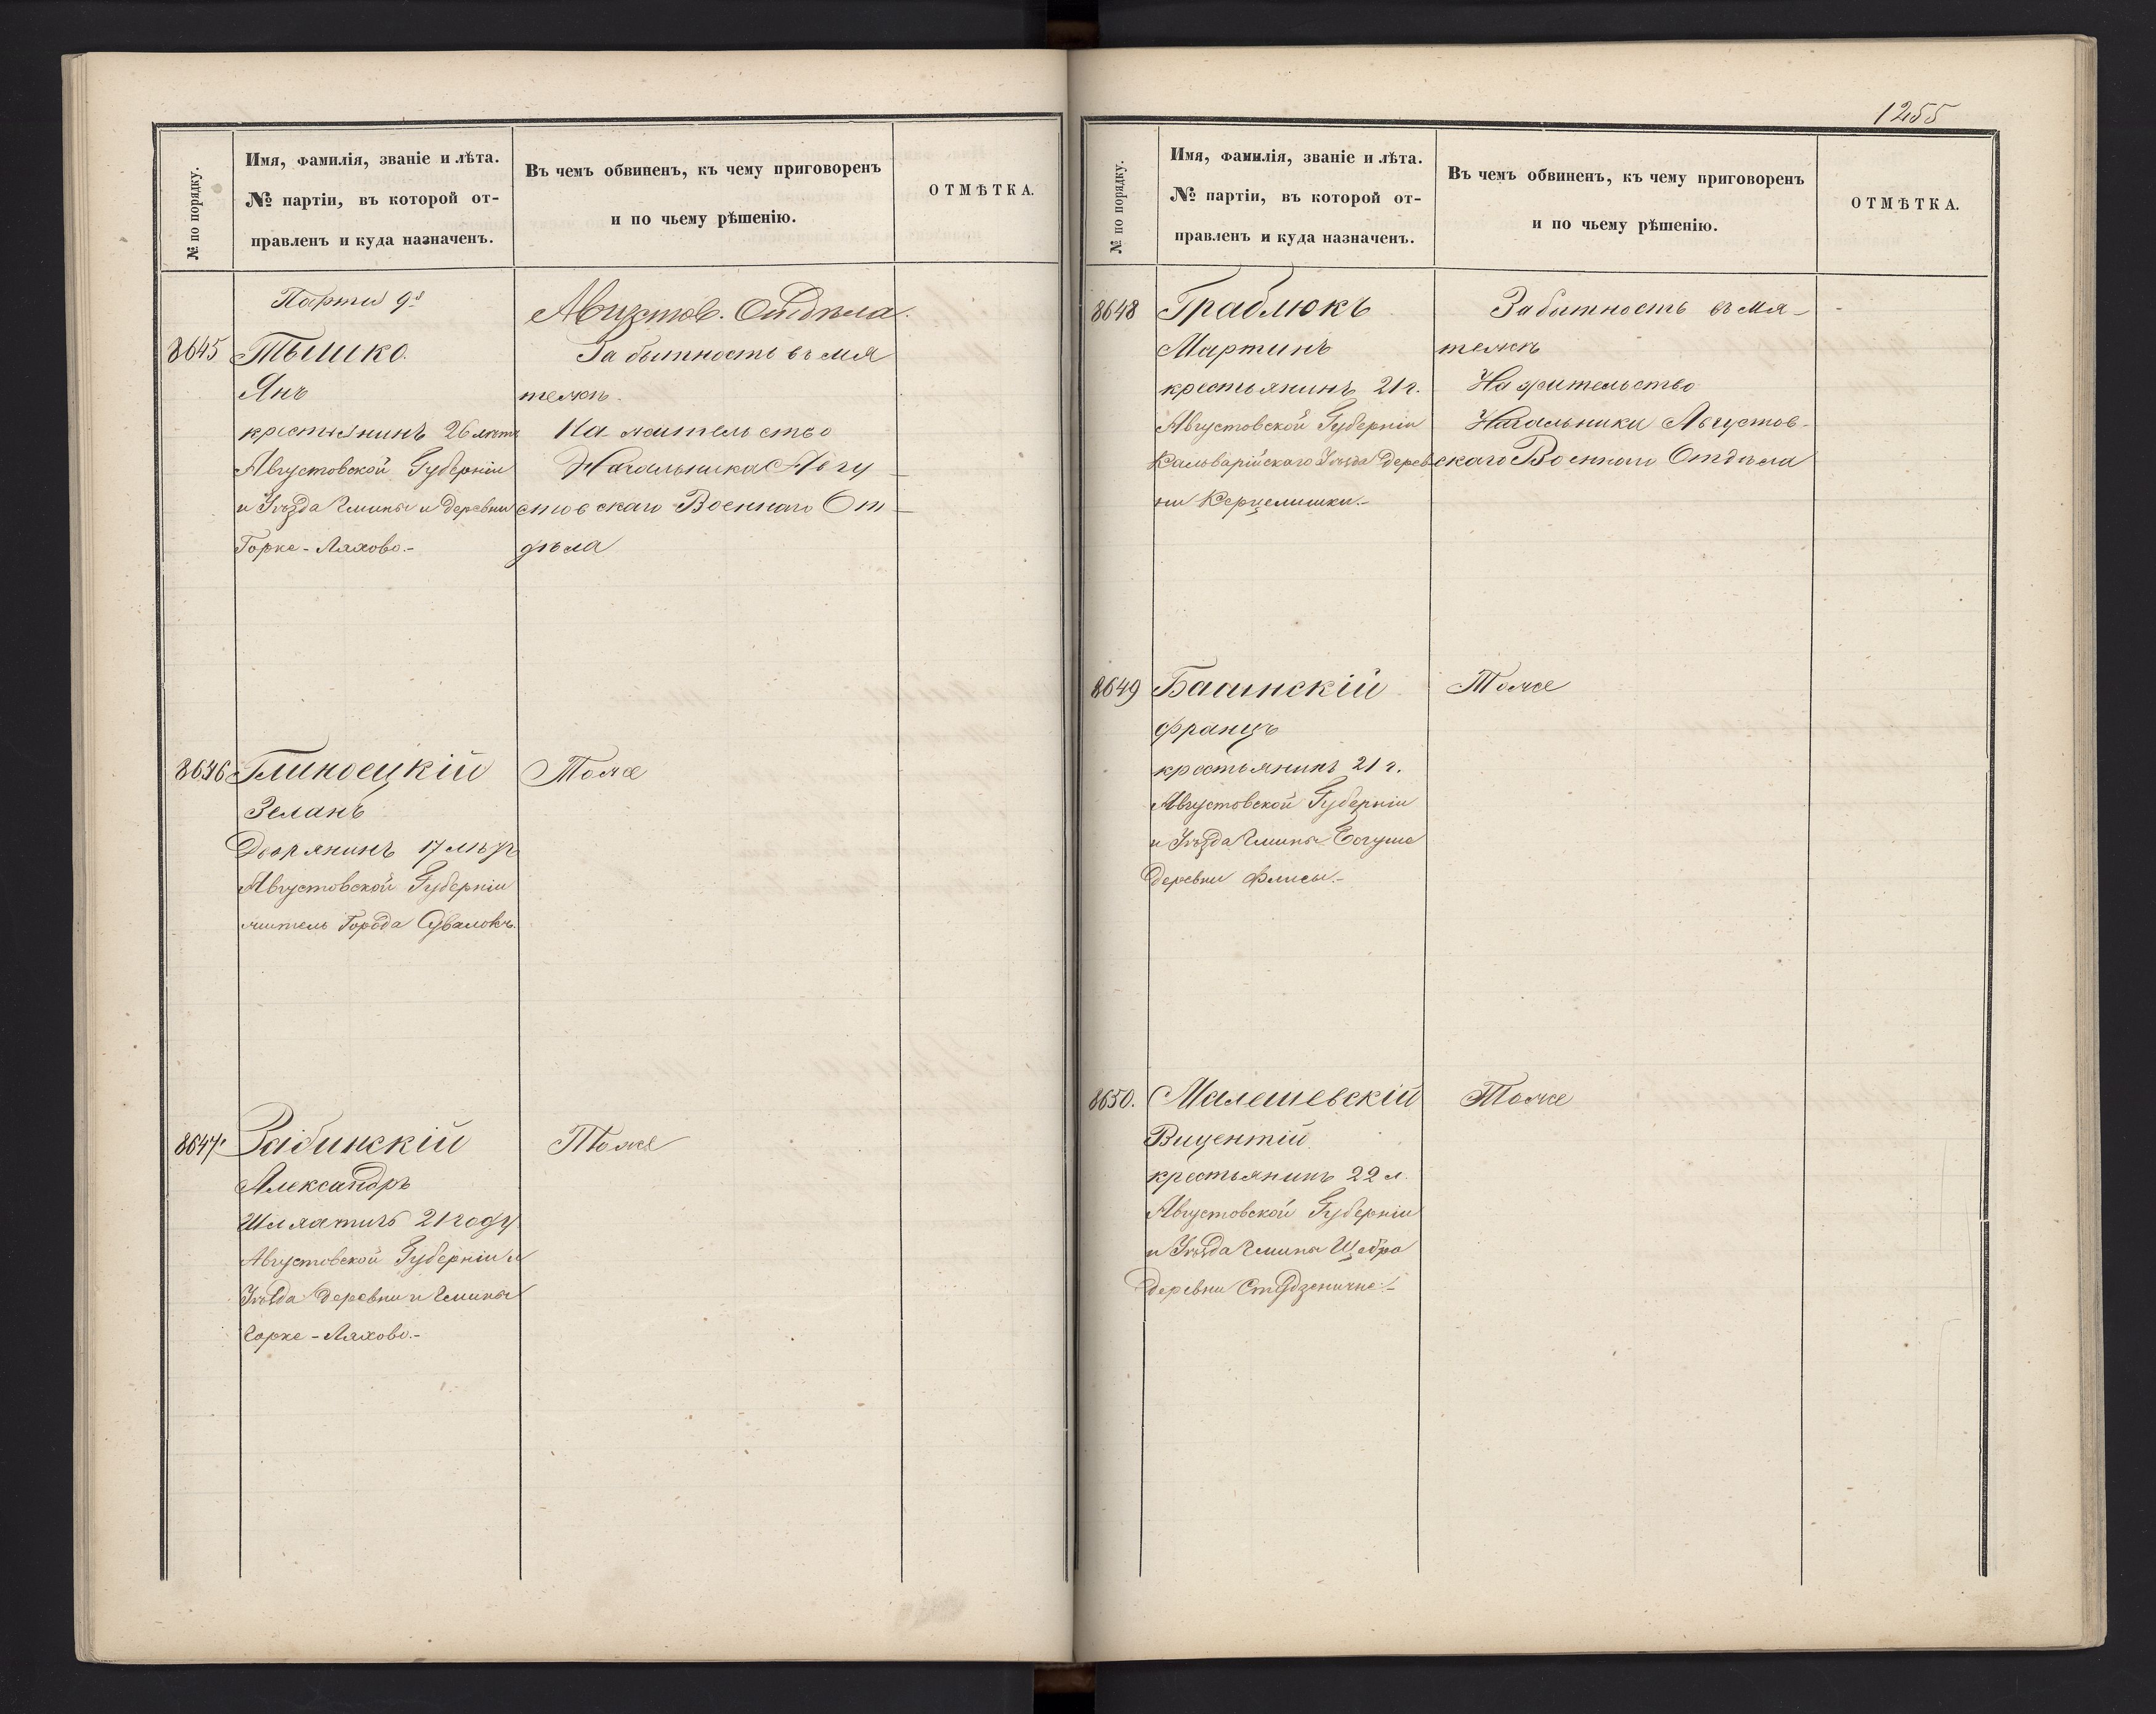 № по порядку.
Имя, фамилія, званіе и лѣта.
№ партіи, въ которой от-
правленъ и куда назначенъ.
Въ чемъ обвиненъ, къ чему приговоренъ
и по чьему рѣшенію.
ОТМѢТКА.
Партіи 9й
Августов. Отдѣла.
8645
Тышко
Янъ
крестьянинъ 26 лѣтъ
Августовской Губерніи
и Уѣзда Гмины и деревни
Горке-Ляхово.-
За бытность въ мя
тежѣ.
На жительство
Начальника Авгу
стовскаго Военнаго От
дѣла
8646
Глиноецкій
Зеланъ
Дворянинъ 17 лѣтъ
Августовской Губерніи
житель Города Сувалокъ.
Тоже
8647.
Забинскій
Александръ
Шляхтичъ 21 году
Августовской Губерніи и
Уѣзда деревни и Гмины
Горке-Ляхово.-
Тоже
1255
№ по порядку.
Имя, фамилія, званіе и лѣта.
№ партіи, въ которой от-
правленъ и куда назначенъ.
Въ чемъ обвиненъ, къ чему приговоренъ
и по чьему рѣшенію.
ОТМѢТКА.
8648
Граблюкъ
Мартинъ
крестьянинъ 21 г.
Августовской Губерніи
Кальварійскаго Уѣзда дерев
ни Керцелишки.-
За битность въ мя-
тежѣ
На жительство
Начальника Августов-
скаго Военнаго Отдѣла
8649
Башнскій
Францъ
крестьянинъ 21 г.
Августовской Губерніи
и Уѣзда Гмины
деревни Флисы.-
Тоже
8650.
Малешевскій
Вицентій
крестьянинъ 22 л.
Августовской Губерніи
и Уѣзда Гмины Щебра
деревни Студзеничне.-
Тоже